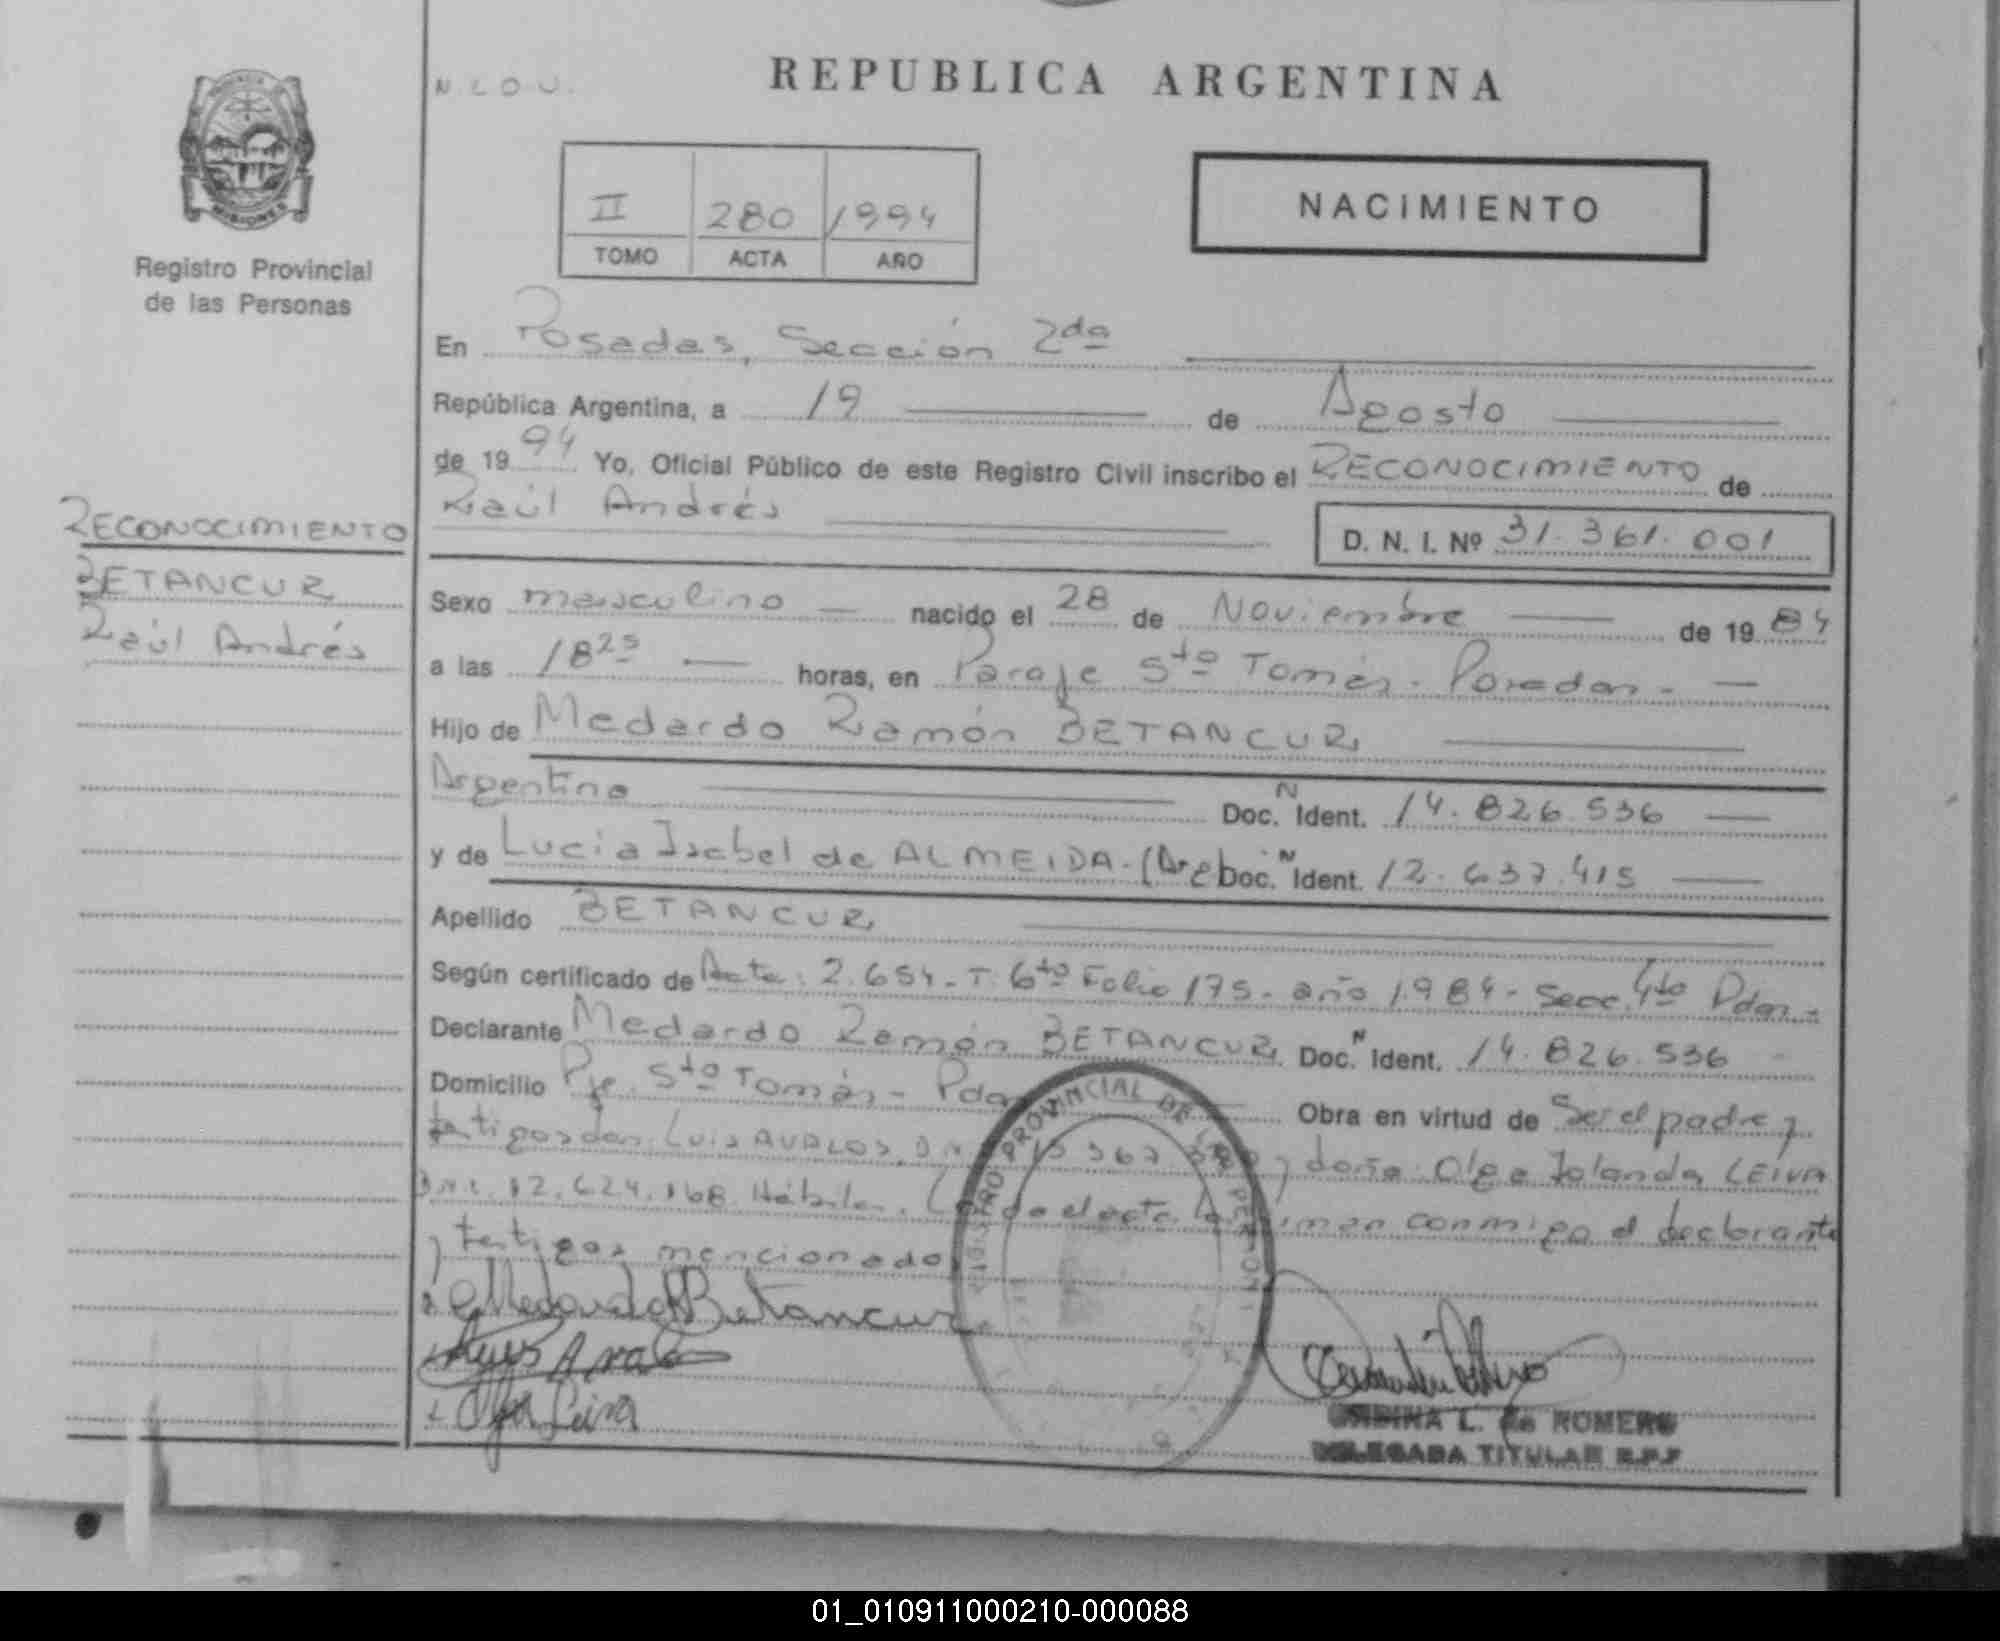 N. L. O. U.
REPUBLICA ARGENTINA
MISIONES
Registro Provincial
de las Personas
II 280 1994
TOMO ACTA AÑO
NACIMIENTO
En Posadas, Sección 2da
República Argentina, a 19 de Agosto
de 1994 Yo, Oficial Público de este Registro Civil inscribo el RECONOCIMIENTO de
Raúl Andrés
D. N. I. Nº 31.361.001
RECONOCIMIENTO
BETANCUR
Raúl Andrés
Sexo masculino nacido el 28 de Noviembre de 1984
a las 18 25 horas, en Paraje Sto Tomás - Posadas -
Hijo de Medardo Ramón BETANCUR
Argentino Doc. N Ident. 14.826.536
y de Lucia Isabel de ALMEIDA - (Arg Doc. N Ident. 12.637.415
Apellido BETANCUR
Según certificado de Acta: 2.654 - T. 6to Folio 175 - año 1.984 - Secc. 4to Pdas -
Declarante Medardo Ramón BETANCUR Doc. N Ident. 14.826.536
Domicilio Pje. Sto Tomás - Pdas Obra en virtud de Ser el padre y
testigos don: Luis AVALOS, D.N. y doña: Olga Iolanda LEIVA
D.N.I. 12.624.168 Hábiles. el acta conmigo el declarante
y testigos mencionados
Medardo R Betancur
Olga Leiva
REGISTRO PROVINCIAL DE LAS PERSONAS
L. de ROMERO
DELEGADA TITULAR R.P.P
01_010911000210-000088